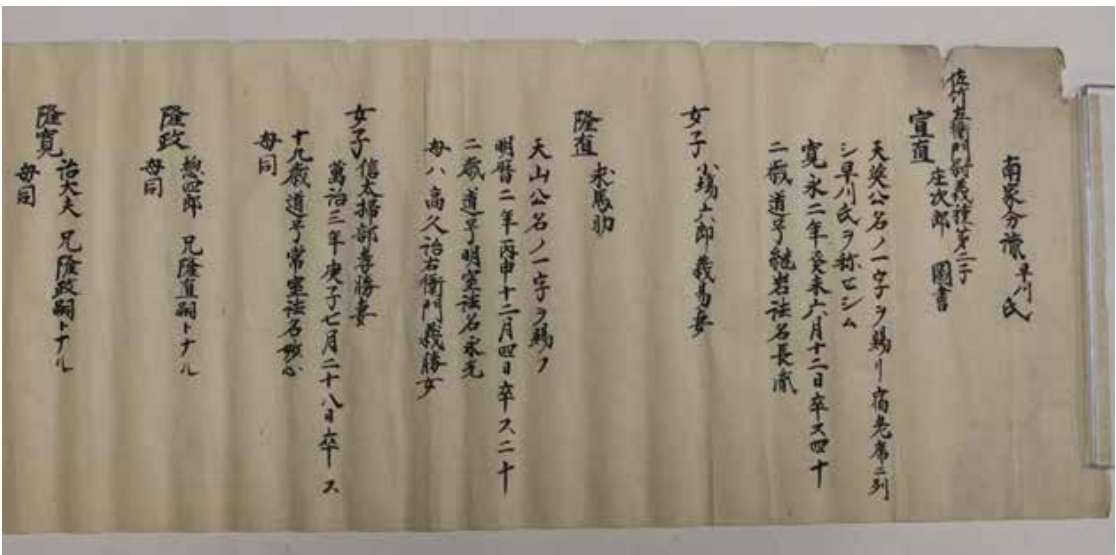 南家分流 早川氏
佐竹左衛門尉義種第二子
宣直 庄次郎 圖書
天英公名ノ一字ヲ賜リ宿老席ニ列
シ早川氏ヲ称セシム
寛永二年 六月十二日卒ス四十
二歳道号 岩法名長
女子 小場六郎義易妻
隆直 求馬助
天山公名ノ一字ヲ賜フ
明暦二年丙申十二月四日卒ス二十
二歳道号明室法名永光
母ハ高久治右衛門義勝女
女子 信太掃部 勝妻
萬治三年庚子七月二十八日卒ス
十九歳道号常室法名妙心
母同
隆政 惣四郎 兄隆直嗣トナル
母同
隆寛 治大夫 兄隆政嗣トナル
母同